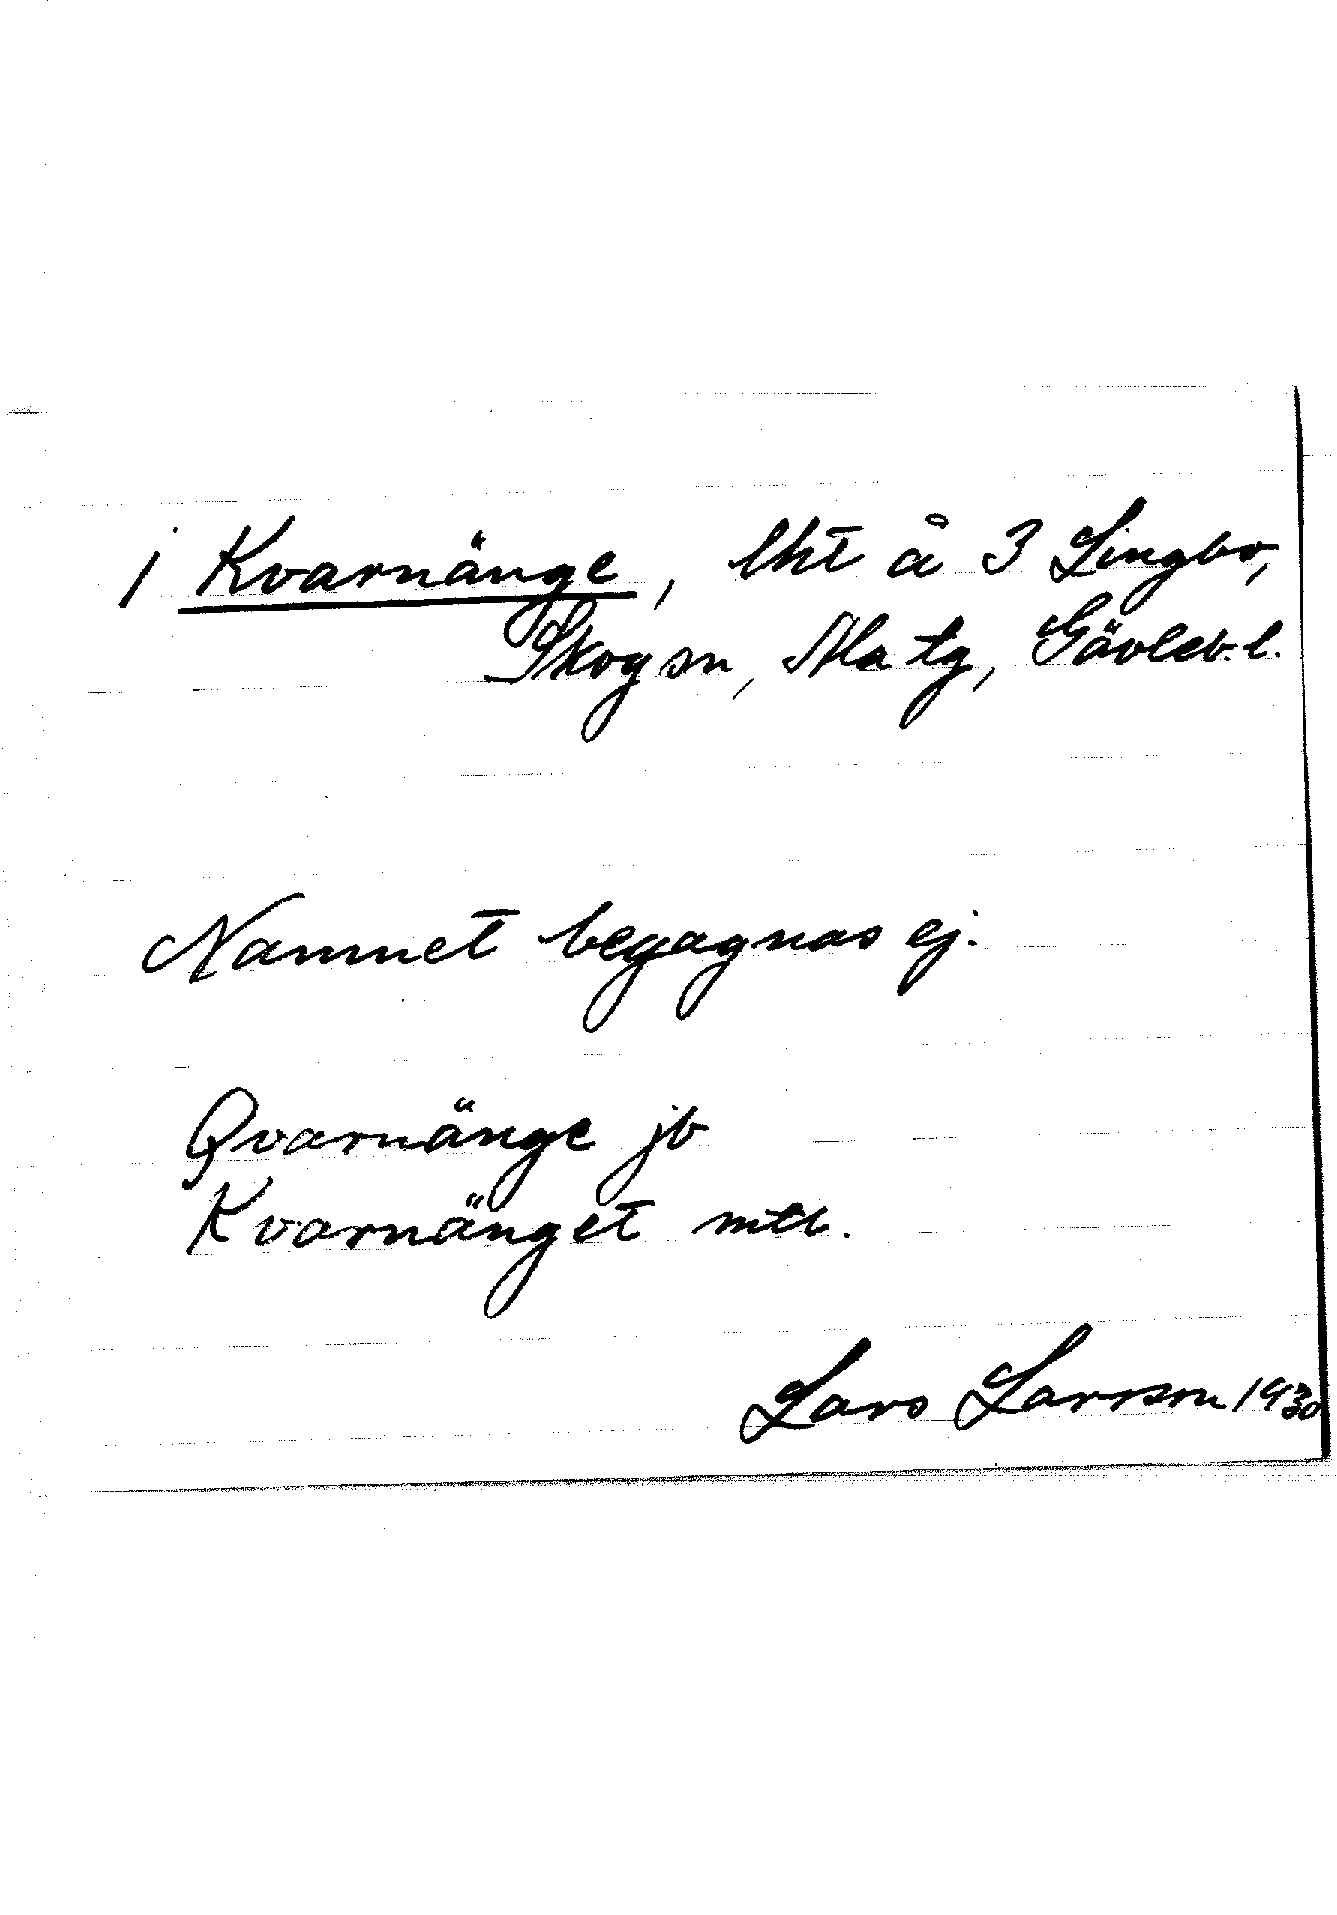 i Kvarnänge, lht å 3 Lingbo,
Skog sn, Ala tg, Gävleb. l.
Namnet begagnas ej.
Qvarnänge jb
Kvarnänget mtb.
Lars Larsson 1930